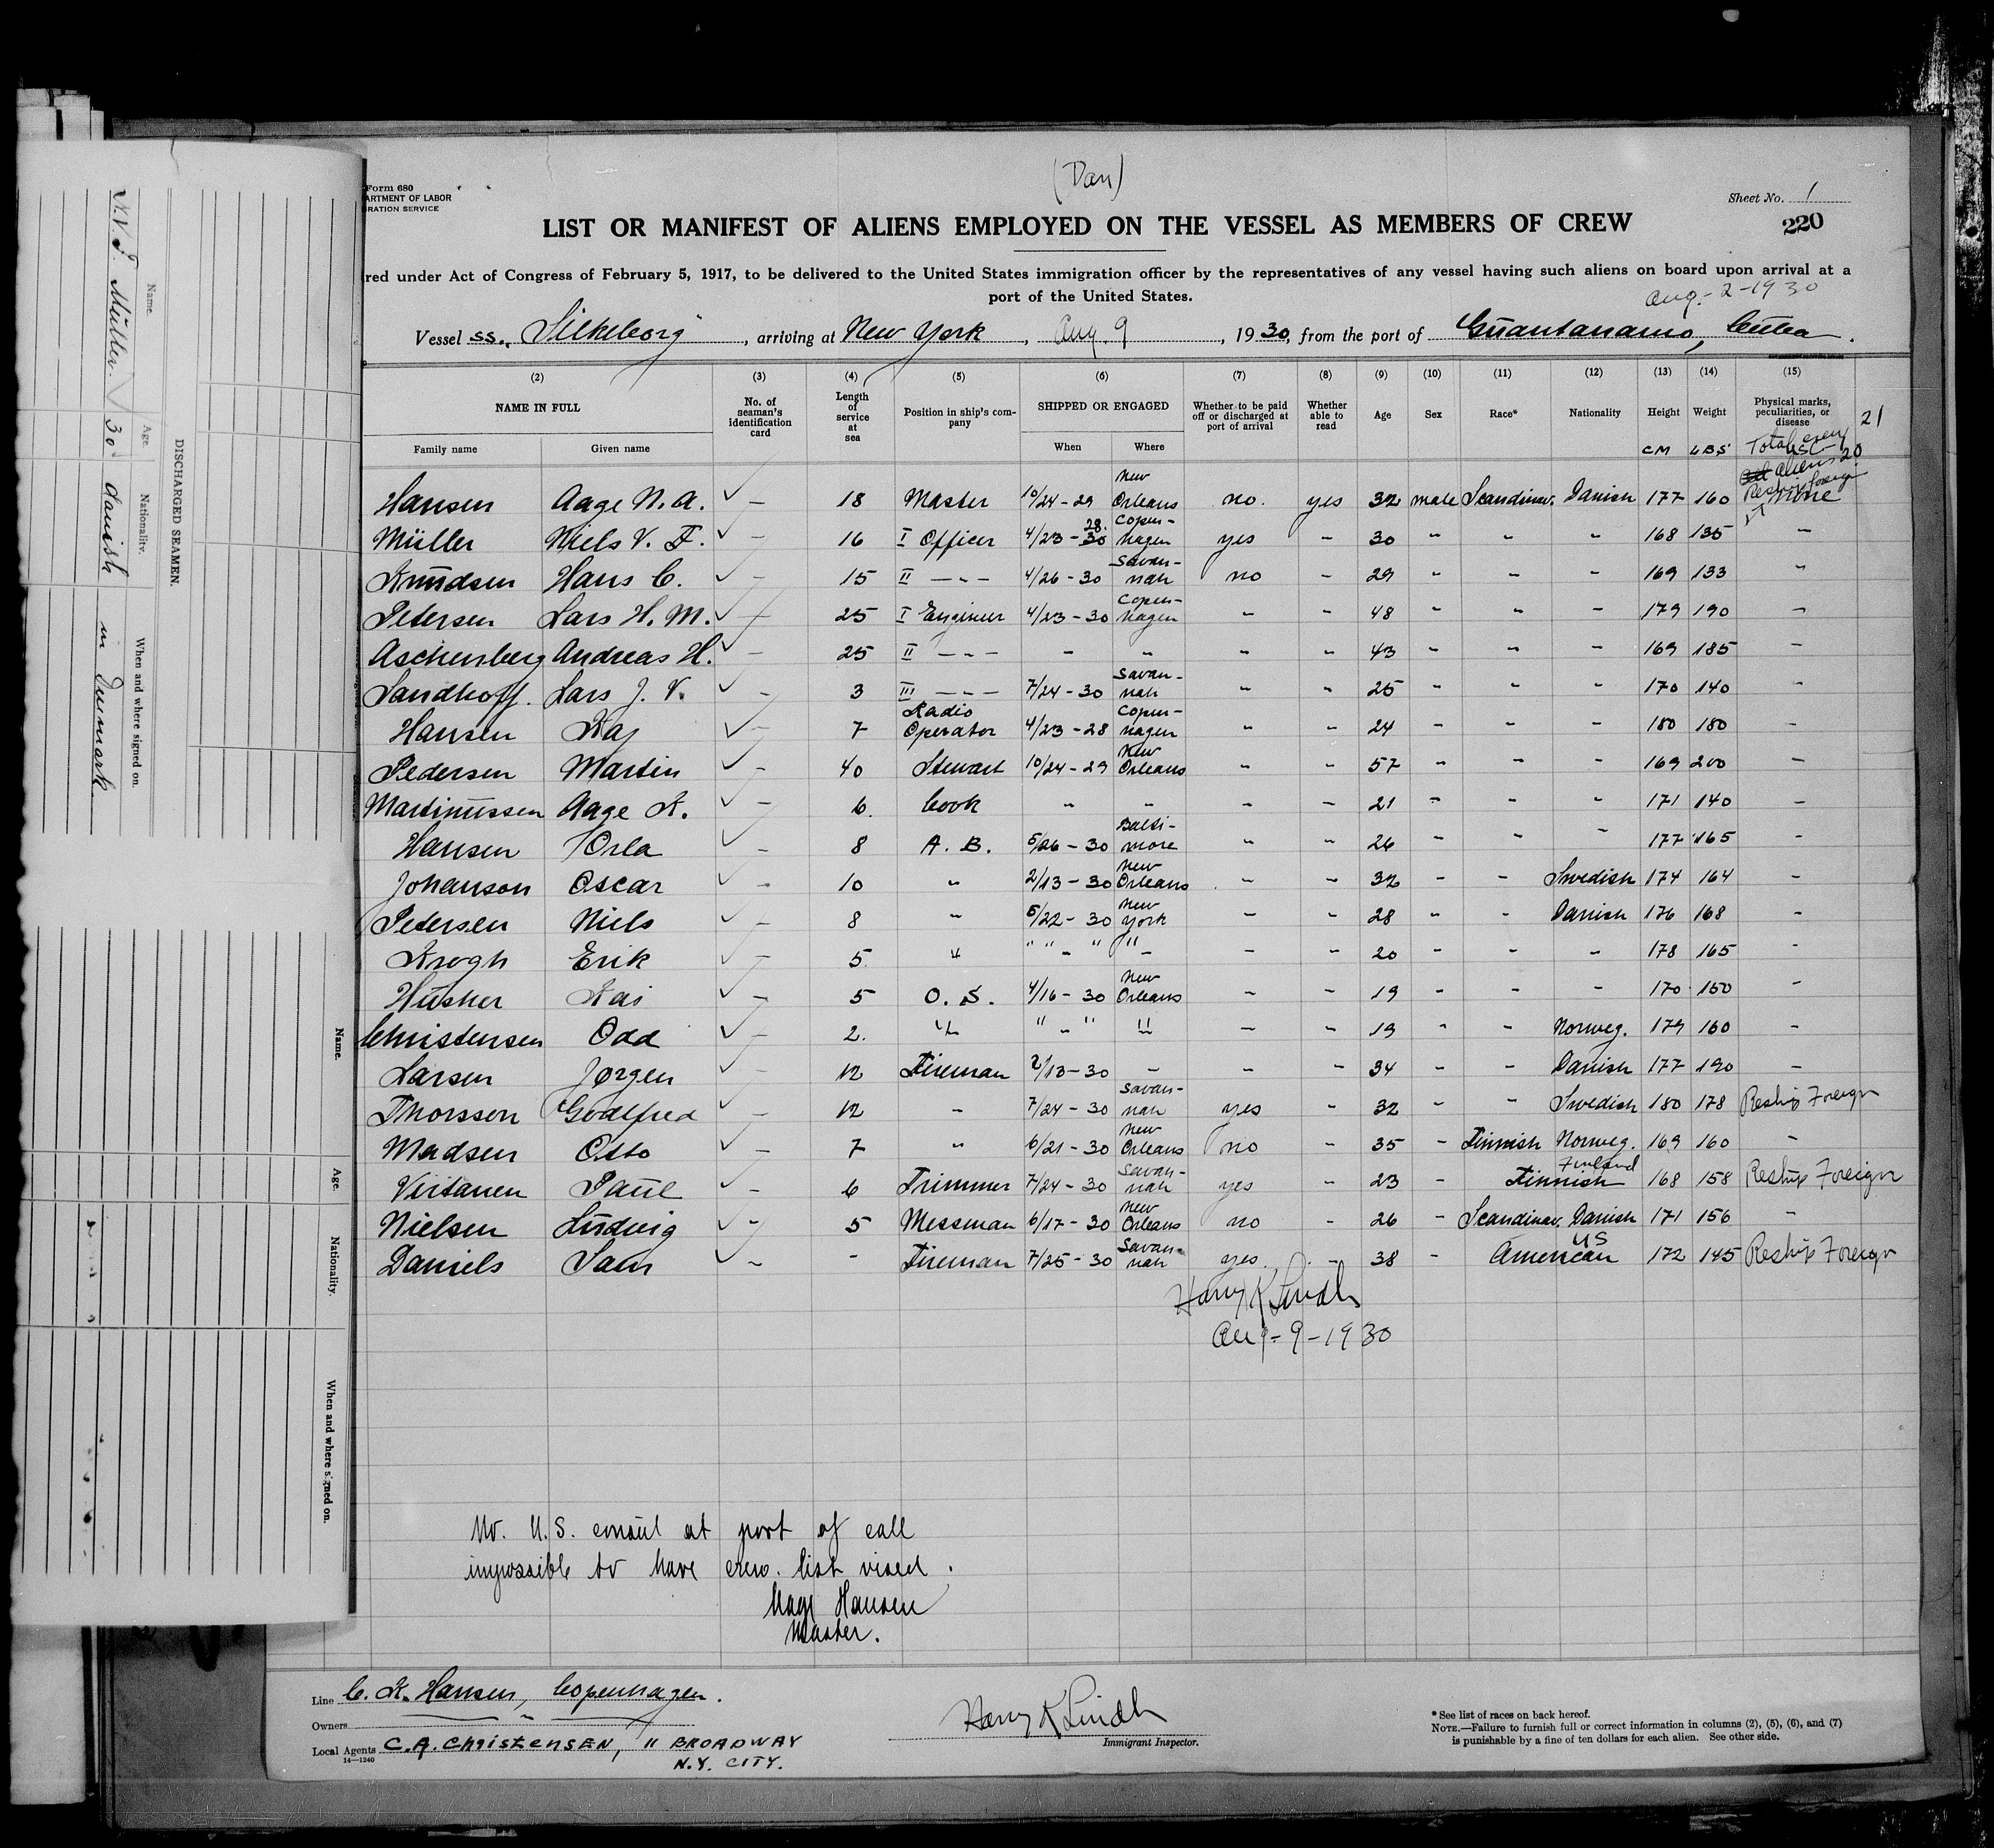 (Dan)
Form 680
ARTMENT OF LABOR
RATION SERVICE
Sheet No. 1
LIST OR MANIFEST OF ALIENS EMPLOYED ON THE VESSEL AS MEMBERS OF CREW
220
red under Act of Congress of February 5, 1917, to be delivered to the United States immigration officer by the representatives of any vessel having such aliens on board upon arrival at a
port of the United States.
Aug.-2-1930
Vessel ss. Silkeborg, arriving at New York, Aug. 9, 1930, from the port of Guantanamo, Cuba.
(2) (3) (4) (5) (6) (7) (8) (9) (10) (11) (12) (13) (14) (15)
NAME IN FULL
Family name Given name
No. of seaman's identification card
Length of service at sea
Position in ship's company
SHIPPED OR ENGAGED
When Where
Whether to be paid off or discharged at port of arrival
Whether able to read
Age
Sex
Race*
Nationality
Height CM
Weight LBS
Physical marks, peculiarities, or disease
21
Total crew
aliens 20
Reship foreign
Hansen Aage N. A. – 18 Master 10/24-29 New Orleans no. yes 32 male Scandinav. Danish 177 160 None
Müller Niels V. F. – 16 I Officer 4/23-30 28. Copenhagen yes " 30 " " " 168 135 "
Knudsen Hans C. – 15 II –"– 4/26-30 Savannah no " 29 " " " 169 133 "
Petersen Lars H. M. – 25 I Engineer 4/23-30 Copenhagen " " 48 " " " 179 190 "
Aschenberg Andreas H. – 25 II –"– " " " " 43 " " " 169 185 "
Sandhoff. Lars J. V. – 3 III –"– 7/24-30 Savannah " " 25 " " " 170 140 "
Hansen Kaj – 7 Radio Operator 4/23-28 Copenhagen " " 24 " " " 180 180 "
Pedersen Martin – 40 Stewart 10/24-29 New Orleans " " 57 " " " 169 200 "
Martinussen Aage K. – 6. Cook " " " " 21 " " " 171 140 "
Hansen Orla – 8 A. B. 5/26-30 Baltimore " " 26 " " " 177 165 "
Johanson Oscar – 10 " 2/13-30 New Orleans " " 32 " " Swedish 174 164 "
Petersen Niels – 8 " 5/22-30 New York " " 28 " " Danish 176 168 "
Krogh Erik – 5. " " " - " " " " 20 " " " 178 165 "
Hüsher Kai – 5 O. S. 4/16-30 New Orleans " " 19 " " " 170 150 "
Christensen Odd – 2. " " - " " " " 19 " " Norweg. 179 160 "
Larsen Jørgen – 12 Fireman 2/13-30 " " " 34 " " Danish 177 190 "
Thorsson Godtfred – 12 " 7/24-30 Savannah yes " 32 " " Swedish 180 178 Reship Foreign
Madsen Otto – 7 " 6/21-30 New Orleans no " 35 " Finnish Norweg. 169 160 "
Virtanen Paul – 6 Trimmer 7/24-30 Savannah yes " 23 " Finnish Finland 168 158 Reship Foreign
Nielsen Ludvig – 5 Messman 6/17-30 New Orleans no " 26 " Scandinav. Danish 171 156 "
Daniels Sam – – Fireman 7/25-30 Savannah yes. " 38 " American US 172 145 Reship Foreign
Harry K Lindh
Aug-9-1930
No. U.S. consul at port of call
impossible to have crew. list vised.
Aage Hansen
Master.
Line C. K. Hansen, Copenhagen.
Owners "
Local Agents C.A. Christensen, 11 BROADWAY
N.Y. CITY.
14—1240
Harry K Lindh
Immigrant Inspector.
* See list of races on back hereof.
NOTE.—Failure to furnish full or correct information in columns (2), (5), (6), and (7)
is punishable by a fine of ten dollars for each alien. See other side.
DISCHARGED SEAMEN.
Name. Age. Nationality. When and where signed on.
N. V. F. Müller. 30. danish in Denmark
Name. Age. Nationality. When and where signed on.